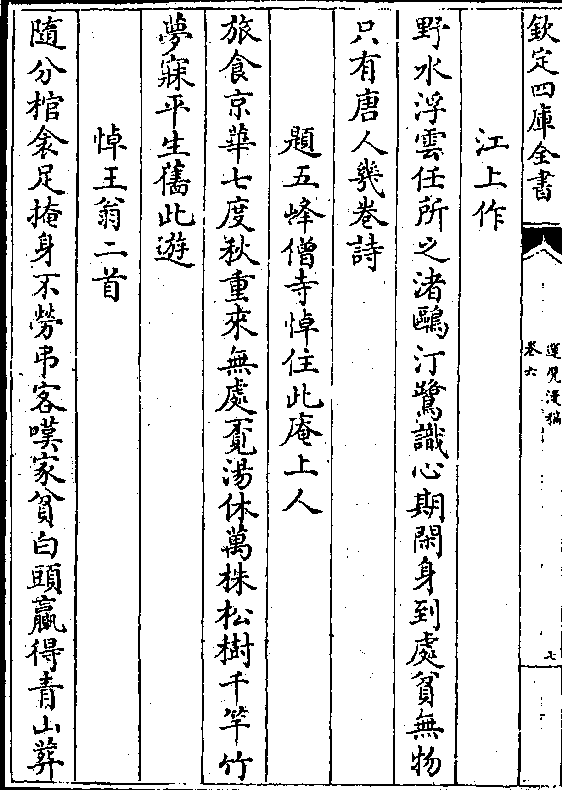 欽定四庫全書
運甓漫稿
卷六
七
江上作
野水浮雲任所之渚鷗汀鷺識心期閑身到處貧無物
只有唐人幾卷詩
題五峰僧寺悼住此庵上人
旅食京華七度秋重來無處覔湯休萬株松樹千竿竹
夢寐平生舊此遊
悼王翁二首
隨分棺衾足掩身不勞弔客嘆家貧白頭贏得青山葬